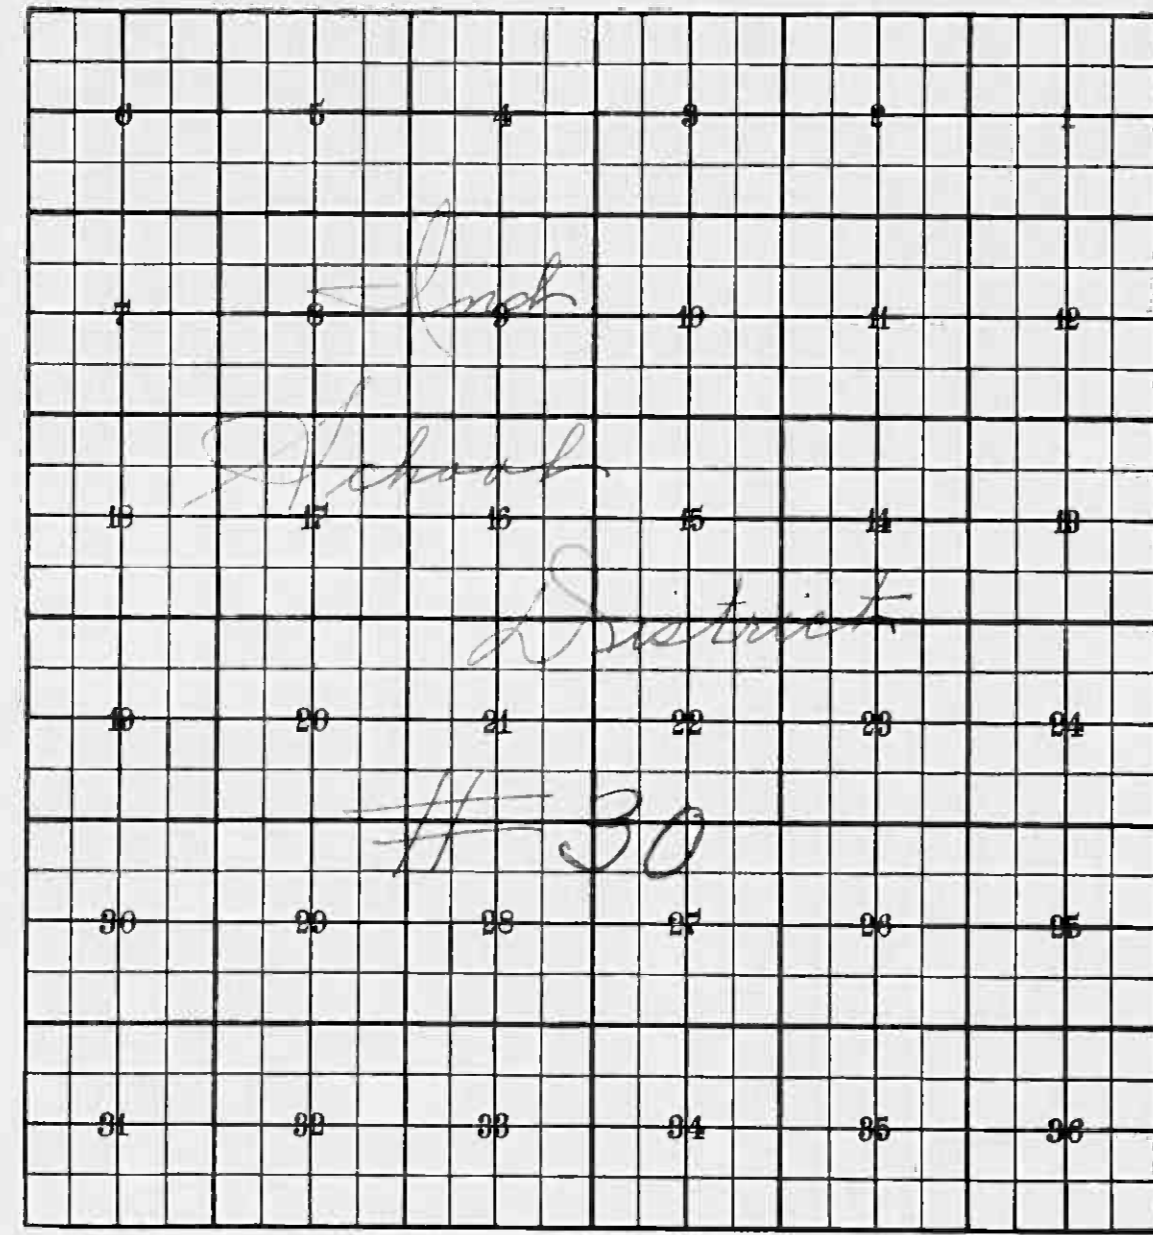 6 5 4 3 2 1
Ind
7 8 9 10 11 12
School
18 17 16 15 14 13
District
19 20 21 22 23 24
# 30
30 29 28 27 26 25
31 32 33 34 35 36